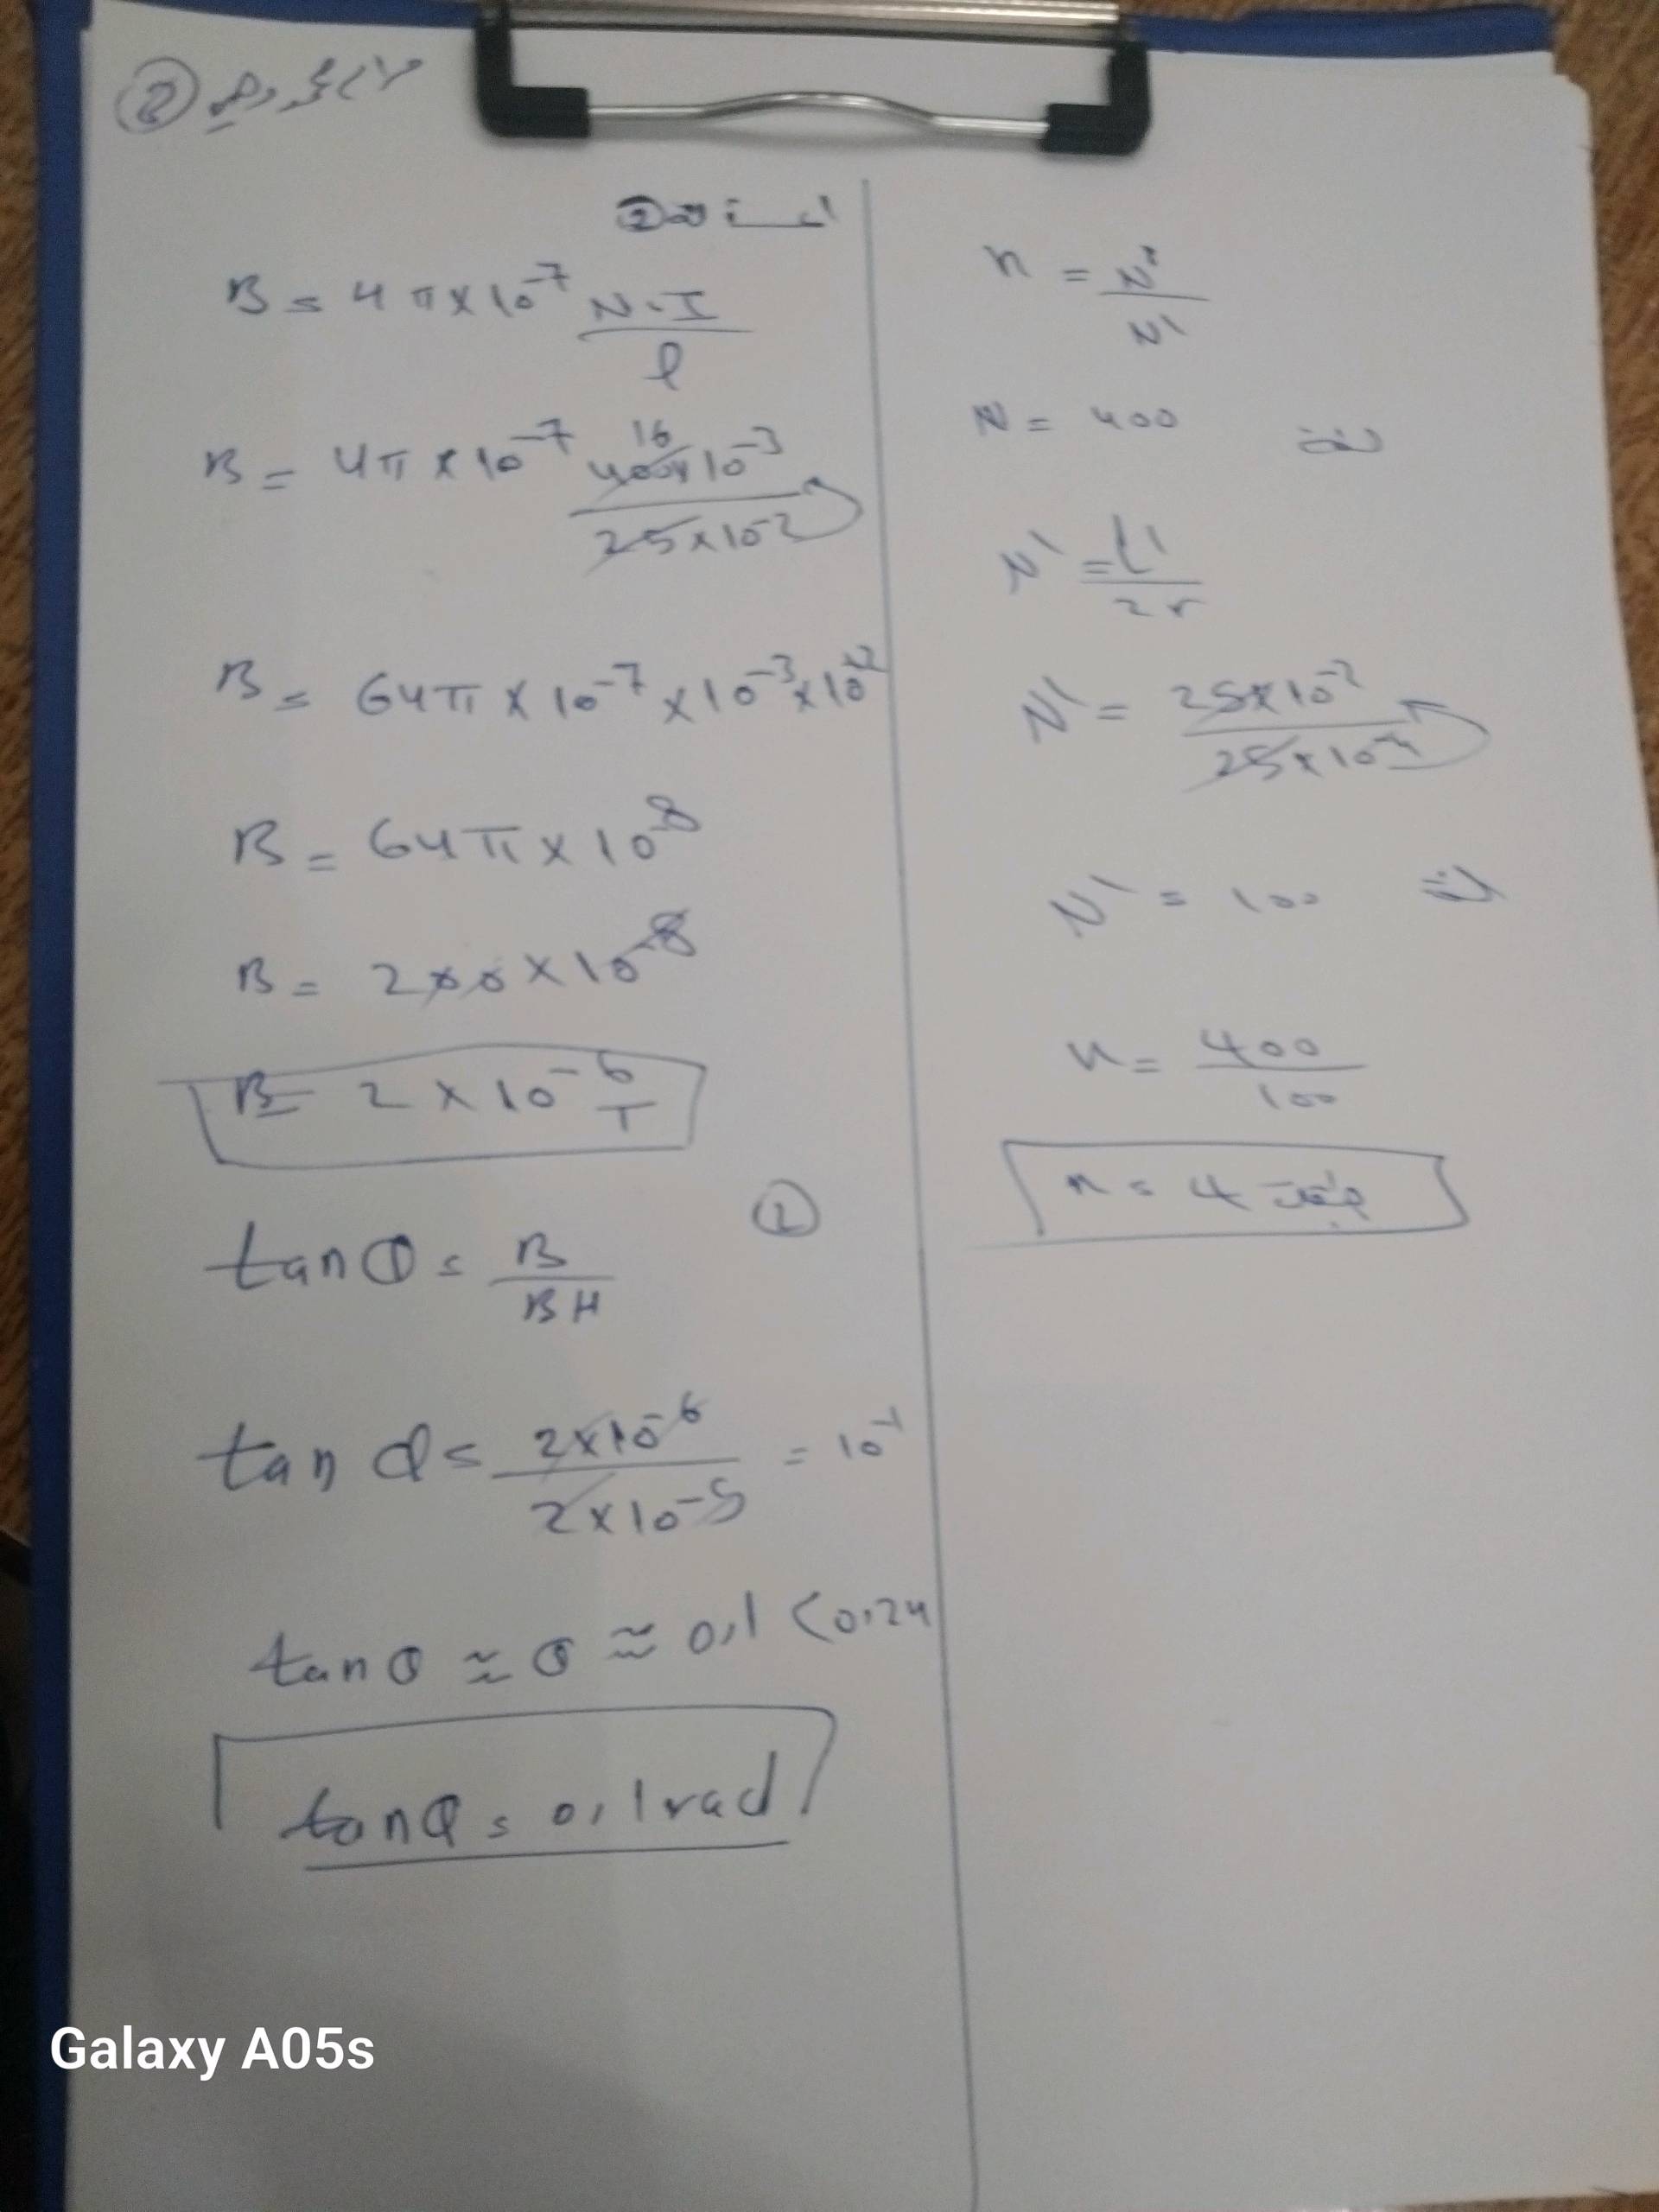 ②
B = 4π×10⁻⁷ N.I / l
B = 4π×10⁻⁷ 16 400×10⁻³ / 25×10⁻²
B = 64π×10⁻⁷×10⁻³×10⁺²
B = 64π×10⁻⁸
B = 200×10⁻⁸
B = 2×10⁻⁶ T
②
tanθ = B / BH
tanθ = 2×10⁻⁶ / 2×10⁻⁵ = 10⁻¹
tanθ ≈ θ ≈ 0,1 < 0,24
tanθ = 0,1 rad
n = N / N'
N = 400 لفة
N' = l' / 2r
N' = 25×10⁻² / 25×10⁻⁴
N' = 100 لفة
n = 400 / 100
n = 4
Galaxy A05s